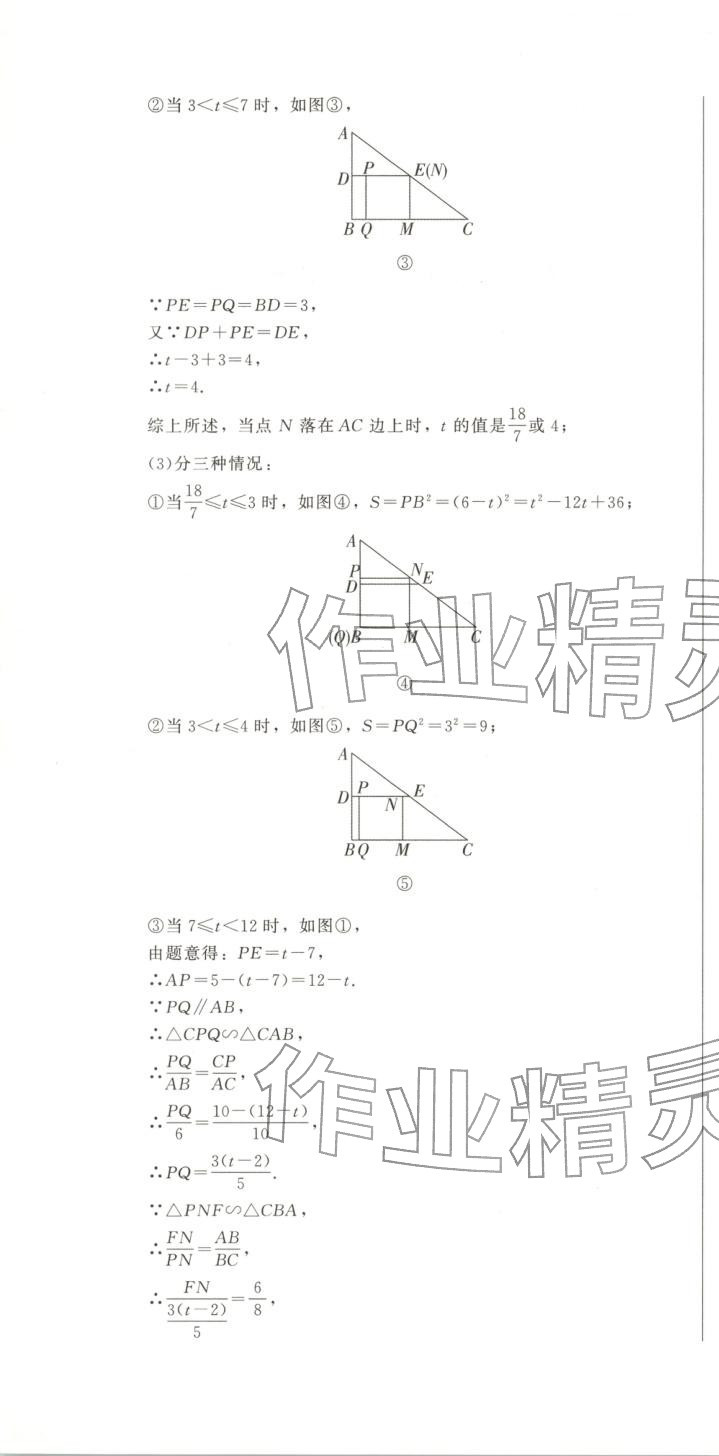 ②当 3<t≤7 时，如图③，
A
D P E(N)
B Q M C
③
∵PE=PQ=BD=3，
又∵DP+PE=DE，
∴t-3+3=4，
∴t=4.
综上所述，当点 N 落在 AC 边上时，t 的值是18/7或 4；
(3)分三种情况：
①当18/7≤t≤3 时，如图④，S=PB²=(6-t)²=t²-12t+36；
A
P N
D E
(Q)B M C
④
作业精灵
②当 3<t≤4 时，如图⑤，S=PQ²=3²=9；
A
D P N E
B Q M C
⑤
③当 7≤t<12 时，如图①，
由题意得：PE=t-7，
∴AP=5-(t-7)=12-t.
∵PQ∥AB，
∴△CPQ∽△CAB，
∴PQ/AB=CP/AC，
作业精灵
∴PQ/6=(10-(12-t))/10，
∴PQ=3(t-2)/5.
∵△PNF∽△CBA，
∴FN/PN=AB/BC，
∴FN/(3(t-2)/5)=6/8，